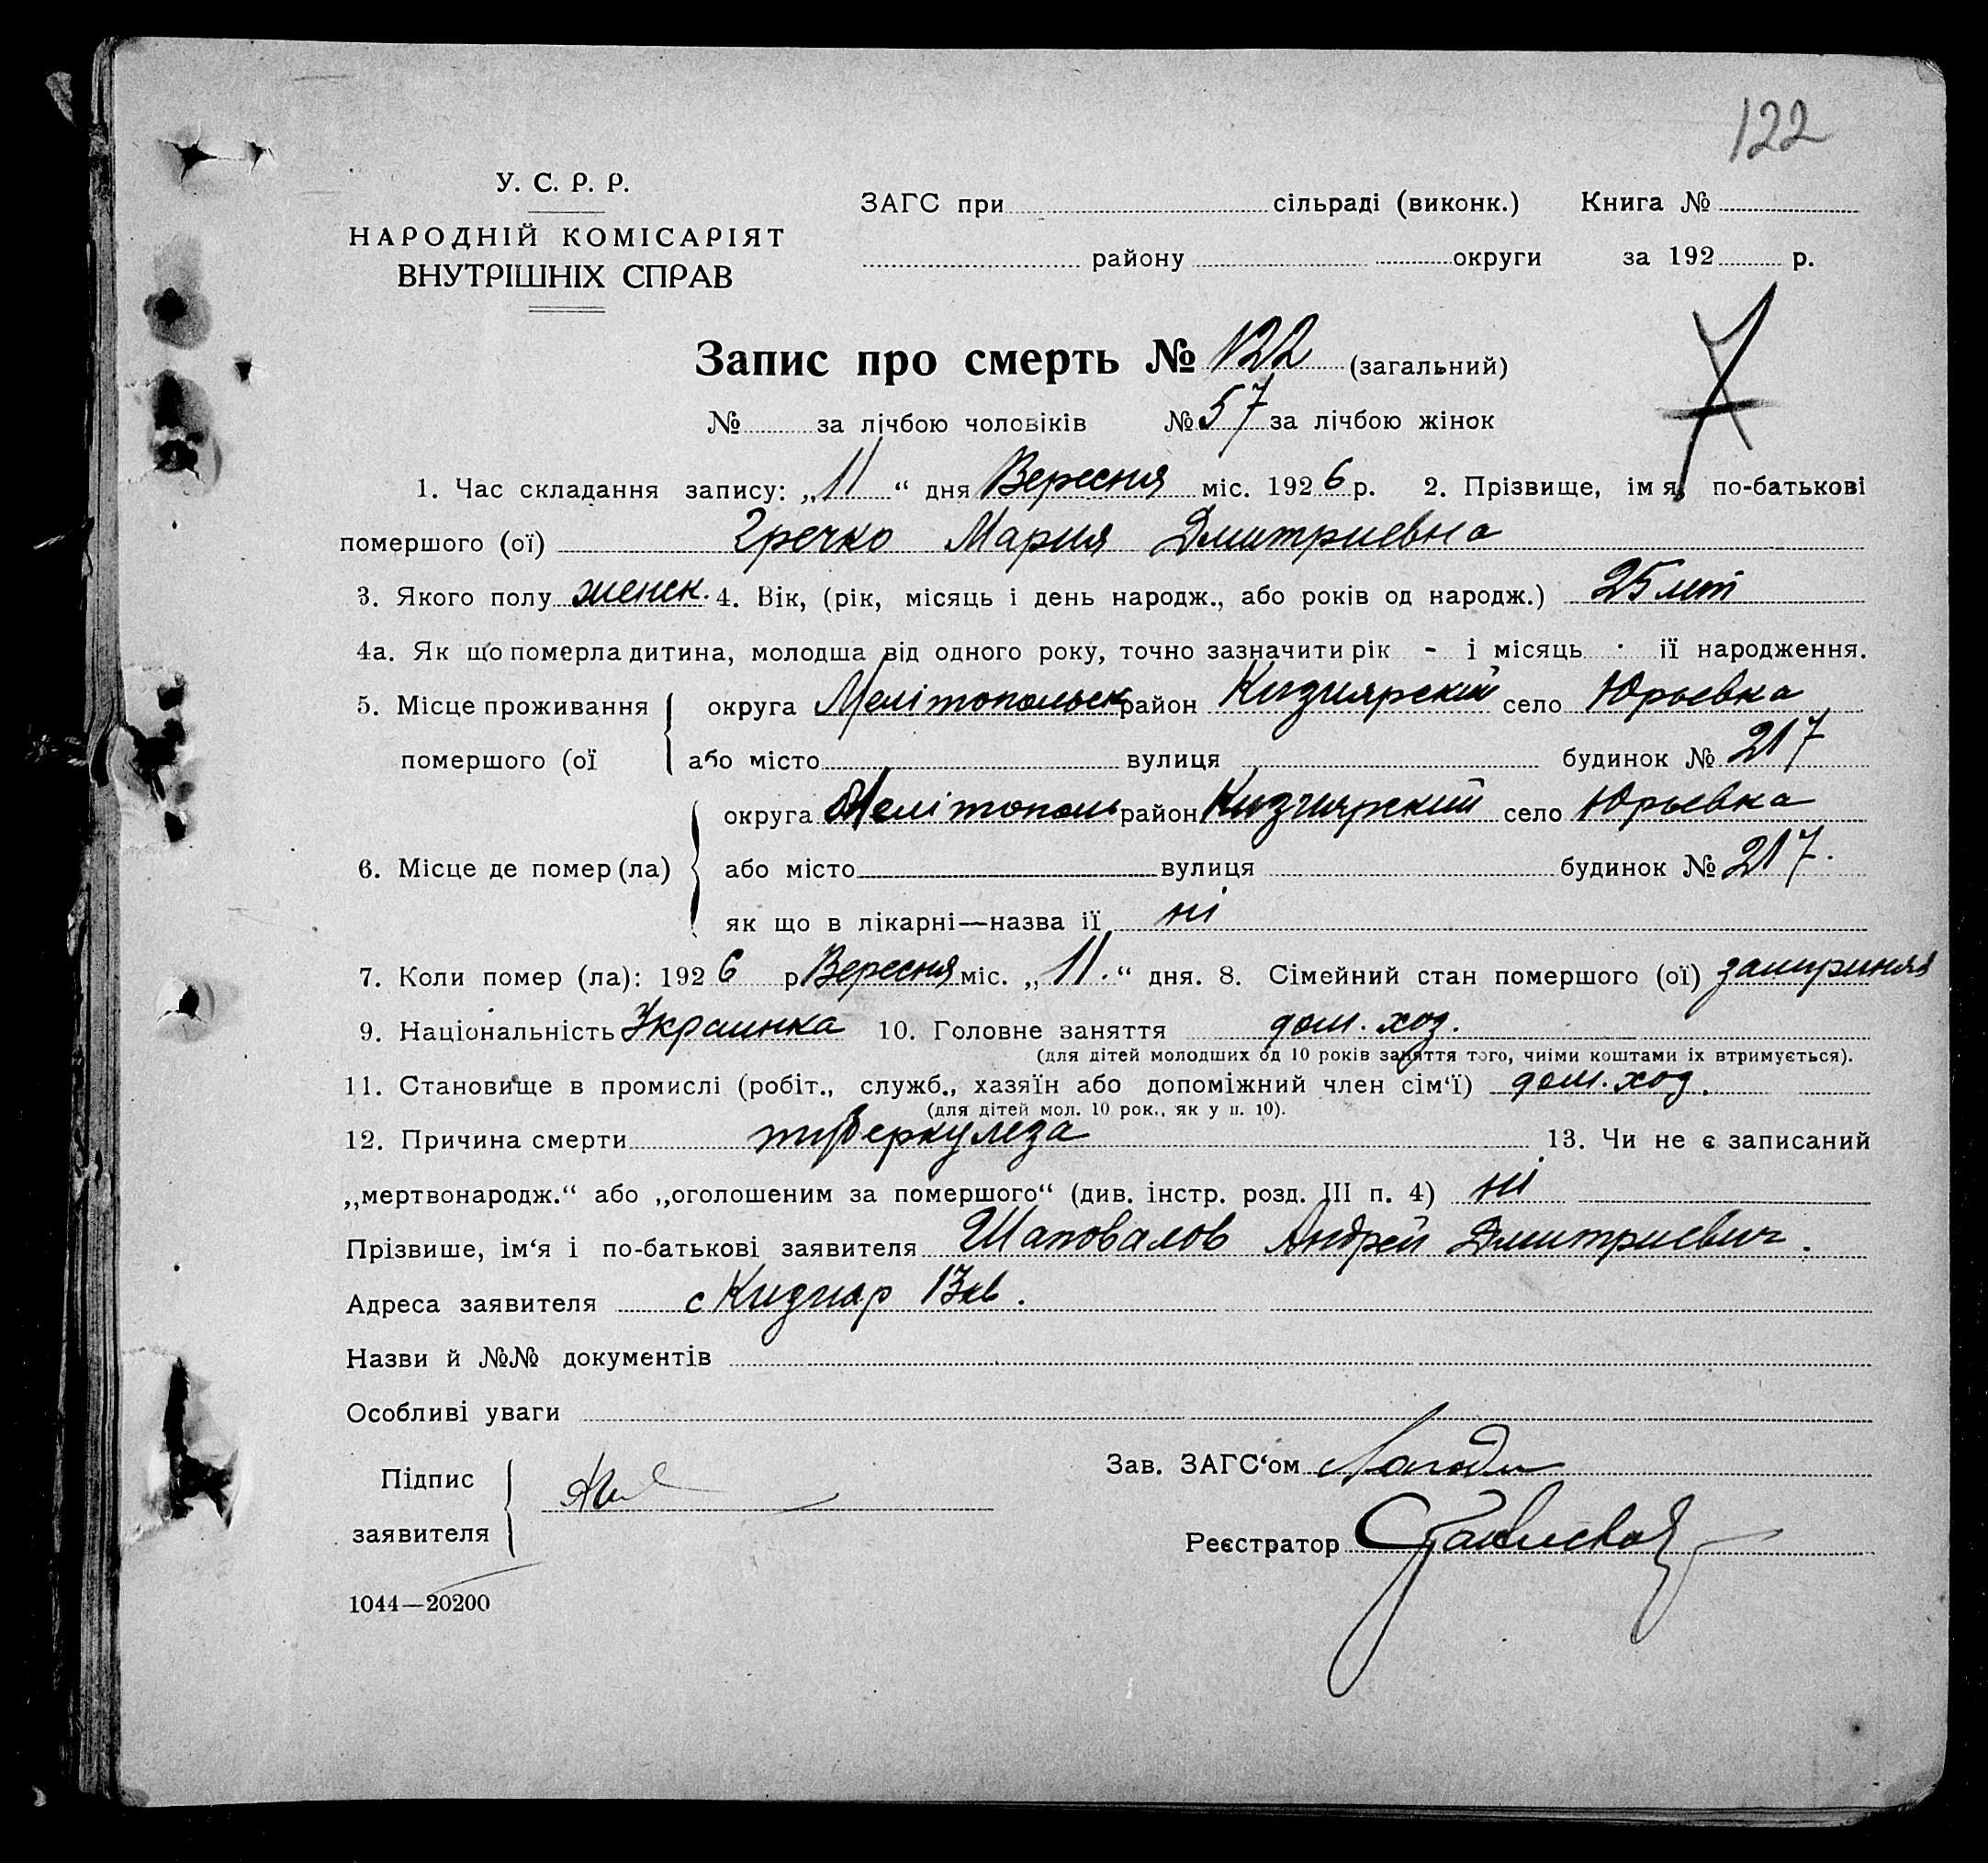 122
У. С. Р. Р.
НАРОДНІЙ КОМІСАРІЯТ
ВНУТРІШНІХ СПРАВ
ЗАГС при сільраді (виконк.) Книга №
району округи за 192 р.
Запис про смерть № 122 (загальний)
№ за лічбою чоловіків № 57 за лічбою жінок
1. Час складання запису: „11“ дня Вересня міс. 1926 р. 2. Прізвище, імя, по-батькові
помершого (ої) Гречко Мария Дмитриевна
3. Якого полу женск. 4. Вік, (рік, місяць і день народж., або років од народж.) 25 лет
4а. Як що померла дитина, молодша від одного року, точно зазначити рік - і місяць · її народження.
5. Місце проживання округа Мелітопольск район Кизиярский село Юрьевка
помершого (ої або місто вулиця будинок № 217
округа Мелітополь район Кизиярский село Юрьевка
6. Місце де помер (ла) або місто вулиця будинок № 217.
як що в лікарні—назва її ні
7. Коли помер (ла): 1926 р Вересня міс. „11.“ дня. 8. Сімейний стан помершого (ої)
9. Національність Украинка 10. Головне заняття дом. хоз.
(для дітей молодших од 10 років заняття того, чиїми коштами їх втримується).
11. Становище в промислі (робіт., служб., хазяїн або допоміжний член сім‘ї) дом. хоз.
(для дітей мол. 10 рок., як у п. 10).
12. Причина смерти туберкулеза 13. Чи не є записаний
„мертвонародж.“ або „оголошеним за помершого“ (див. інстр. розд. III п. 4) ні
Прізвише, ім‘я і по-батькові заявителя Шаповалов Андрей Дмитриевич.
Адреса заявителя с Кизиар
Назви й №№ документів
Особливі уваги
Підпис
заявителя
Зав. ЗАГС‘ом
Реєстратор
1044—20200